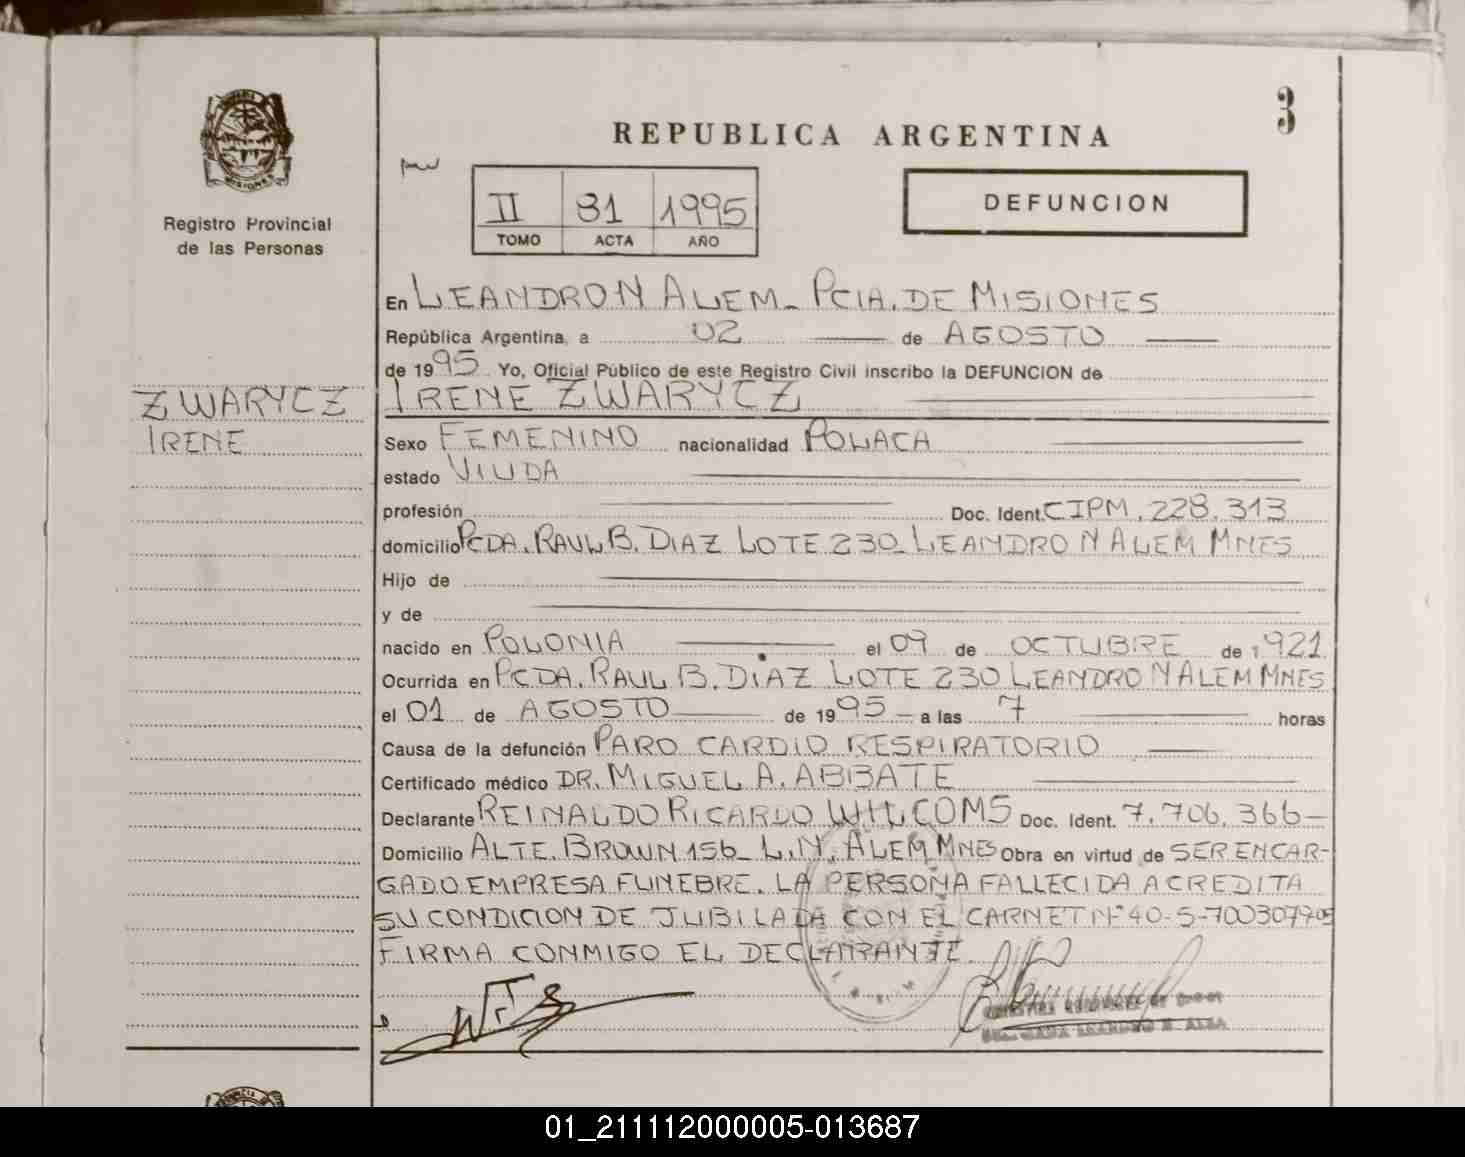 3
REPUBLICA ARGENTINA
PROVINCIA DE
MISIONES
Registro Provincial
de las Personas
II 81 1995
TOMO ACTA AÑO
DEFUNCION
ZWARYCZ
IRENE
En LEANDRO N ALEM - PCIA. DE MISIONES
República Argentina, a 02 de AGOSTO
de 1995 Yo, Oficial Público de este Registro Civil inscribo la DEFUNCION de
IRENE ZWARYCZ
Sexo FEMENINO nacionalidad POLACA
estado VIUDA
profesión Doc. Ident. CIPM. 228.313
domicilio PCDA. RAUL B. DIAZ LOTE 230 - LEANDRO N ALEM MNES
Hijo de
y de
nacido en POLONIA el 09 de OCTUBRE de 1921
Ocurrida en PCDA. RAUL B. DIAZ LOTE 230 LEANDRO N ALEM MNES
el 01 de AGOSTO de 1995 - a las 7 horas
Causa de la defunción PARO CARDIO RESPIRATORIO
Certificado médico DR. MIGUEL A. ABBATE
Declarante REINALDO RICARDO WILCOMS Doc. Ident. 7.706.366-
Domicilio ALTE. BROWN 156 - L.N. ALEM MNES Obra en virtud de SER ENCAR-
GADO EMPRESA FUNEBRE. LA PERSONA FALLECIDA ACREDITA
SU CONDICION DE JUBILADA CON EL CARNET Nº 40-5-7003079-05
FIRMA CONMIGO EL DECLARANTE.
01_211112000005-013687